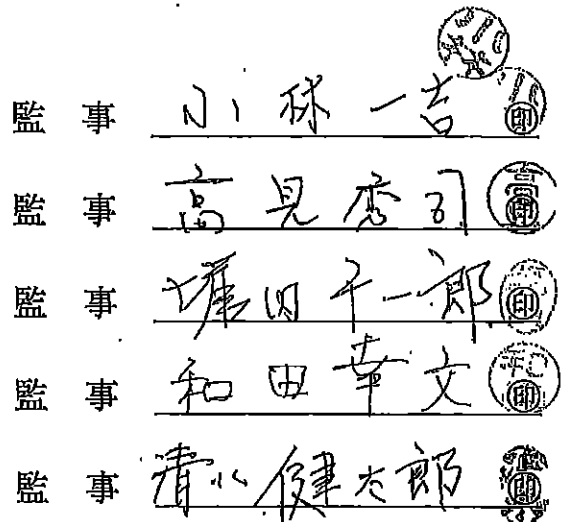 監 事 小林一吉 ㊞
監 事 高見秀司 ㊞
監 事 堀田千一郎 ㊞
監 事 和田幸文 ㊞
監 事 清水健太郎 ㊞